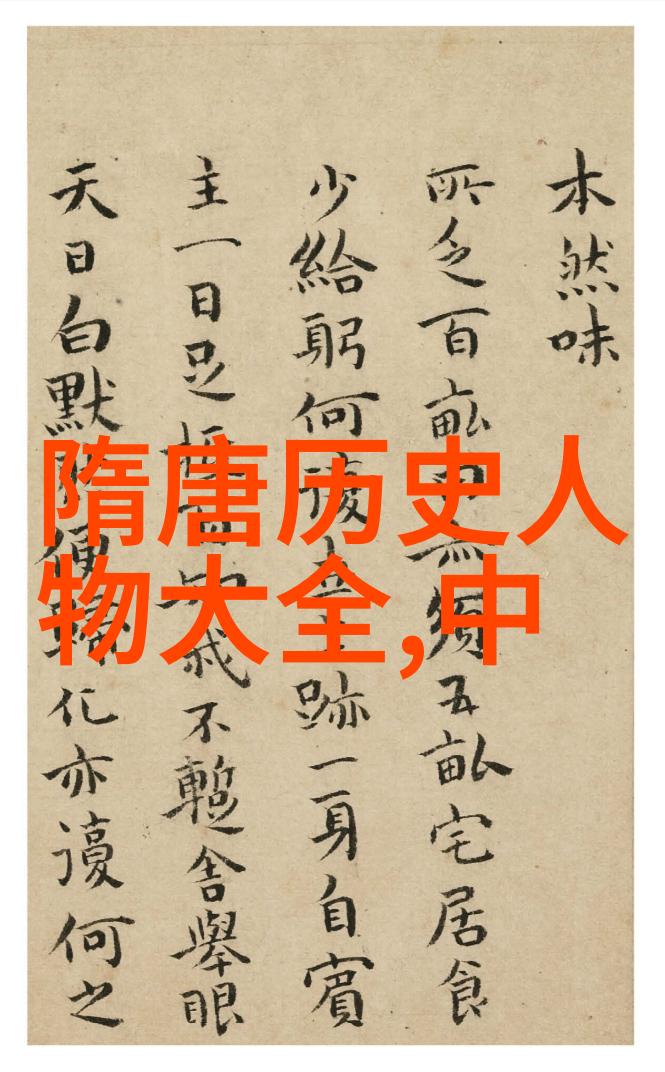 隋唐历史人
物大全,中
本然味
所乏百畝須五畝宅居食
少給躬何復跡一身自賓
主一日足戒不暫舍舉眼
天日白默便歸化亦復何之